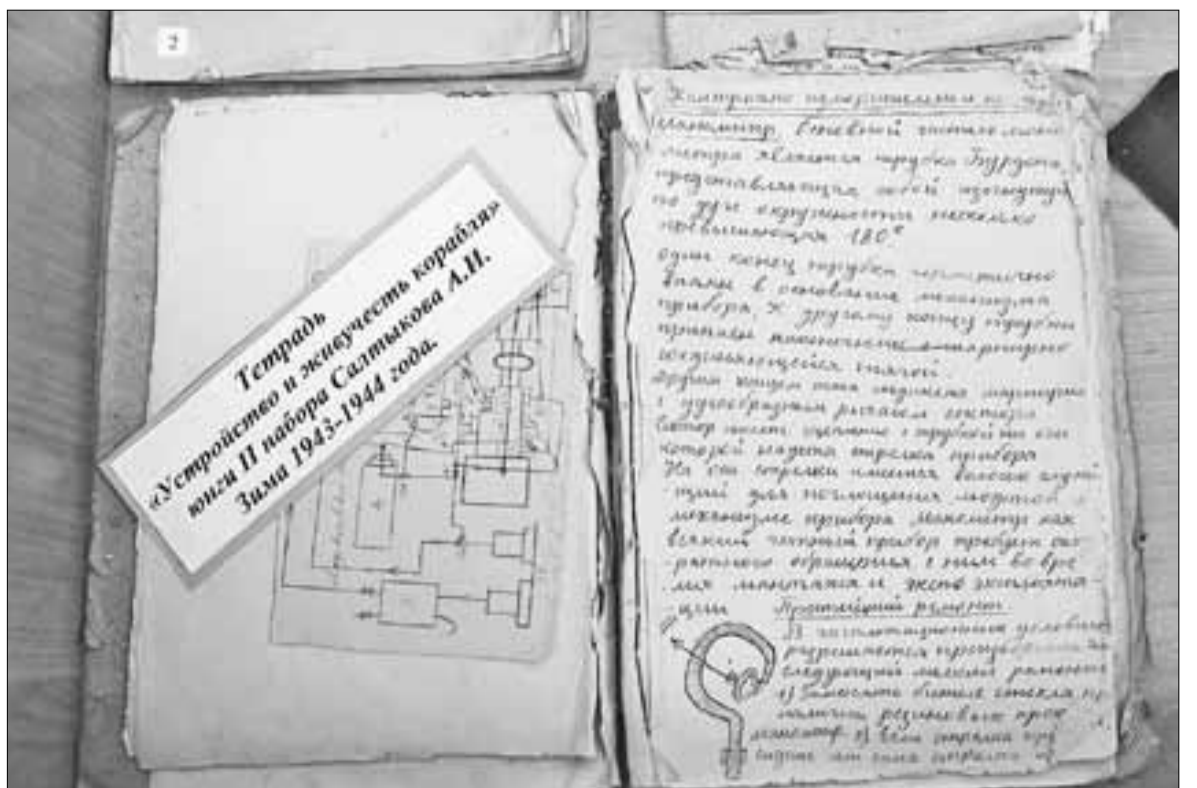 2
Тетрадь
«Устройство и живучесть корабля»
юнги II набора Салтыкова А.И.
Зима 1943-1944 года.
Контрольно измерительные
Манометр. Основной частью мано
метра является трубка Бурдона,
представляющая собой изогнутую
по дуге окружности несколько
превышающая 180°
один конец трубки герметично
впаян в основание механизма
прибора. К другому концу трубки
припаян наконечник шарнирно
соединяющейся тягой.
Другим концом тяга соединена шарнирно
с удообразным рычагом сектора
Сектор имеет сцепление с трубкой на оси
которой надета стрелка прибора
На оси стрелки имеется волосок
-щий для поглощения люфтов в
механизме прибора Манометр как
всякий точный прибор требует ак
-ратного обращения с ним во вре
-мя монтажа и экспл эксплоата-
-ции Простейший ремонт.
В эксплотационных условиях
разрешается производить
следующий мелкий ремонт
1) Заменить битые стекла
резиновых прок
манометр. 2) если стрелка